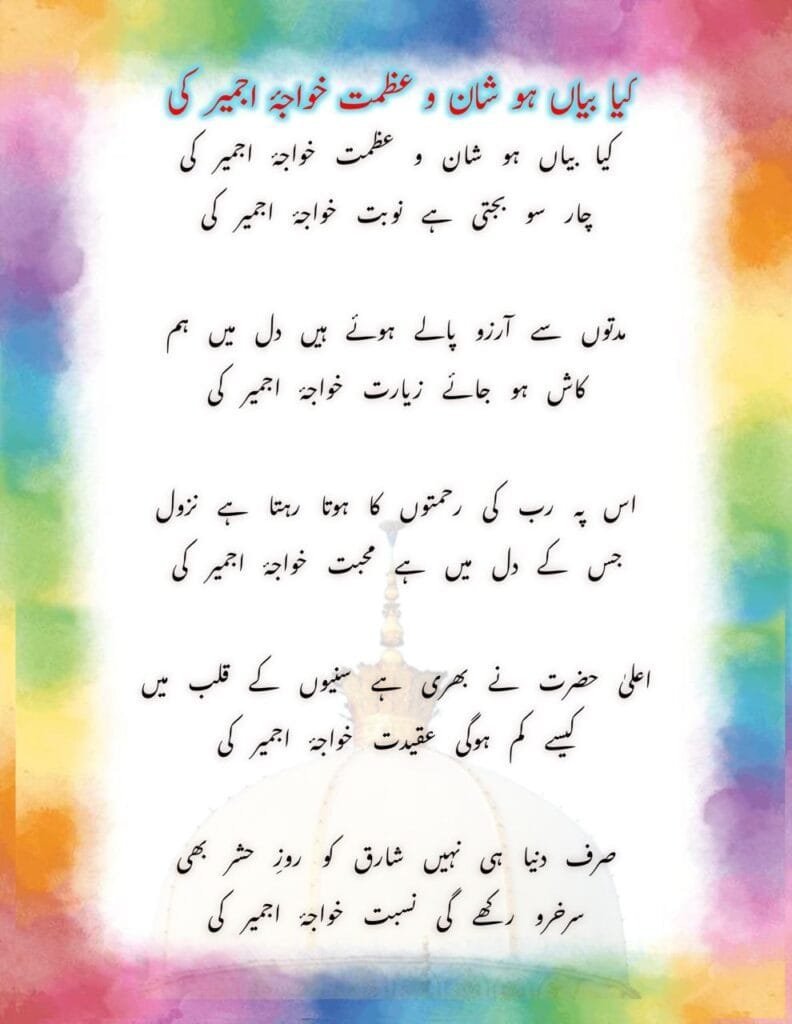 کیا بیاں ہو شان و عظمت خواجۂ اجمیر کی
کیا بیاں ہو شان و عظمت خواجۂ اجمیر کی
چار سو بجتی ہے نوبت خواجۂ اجمیر کی
مدتوں سے آرزو پالے ہوئے ہیں دل میں ہم
کاش ہو جائے زیارت خواجۂ اجمیر کی
اس پہ رب کی رحمتوں کا ہوتا رہتا ہے نزول
جس کے دل میں ہے محبت خواجۂ اجمیر کی
اعلیٰ حضرت نے بھری ہے سنیوں کے قلب میں
کیسے کم ہوگی عقیدت خواجۂ اجمیر کی
صرف دنیا ہی نہیں شارق کو روزِ حشر بھی
سرخرو رکھے گی نسبت خواجۂ اجمیر کی